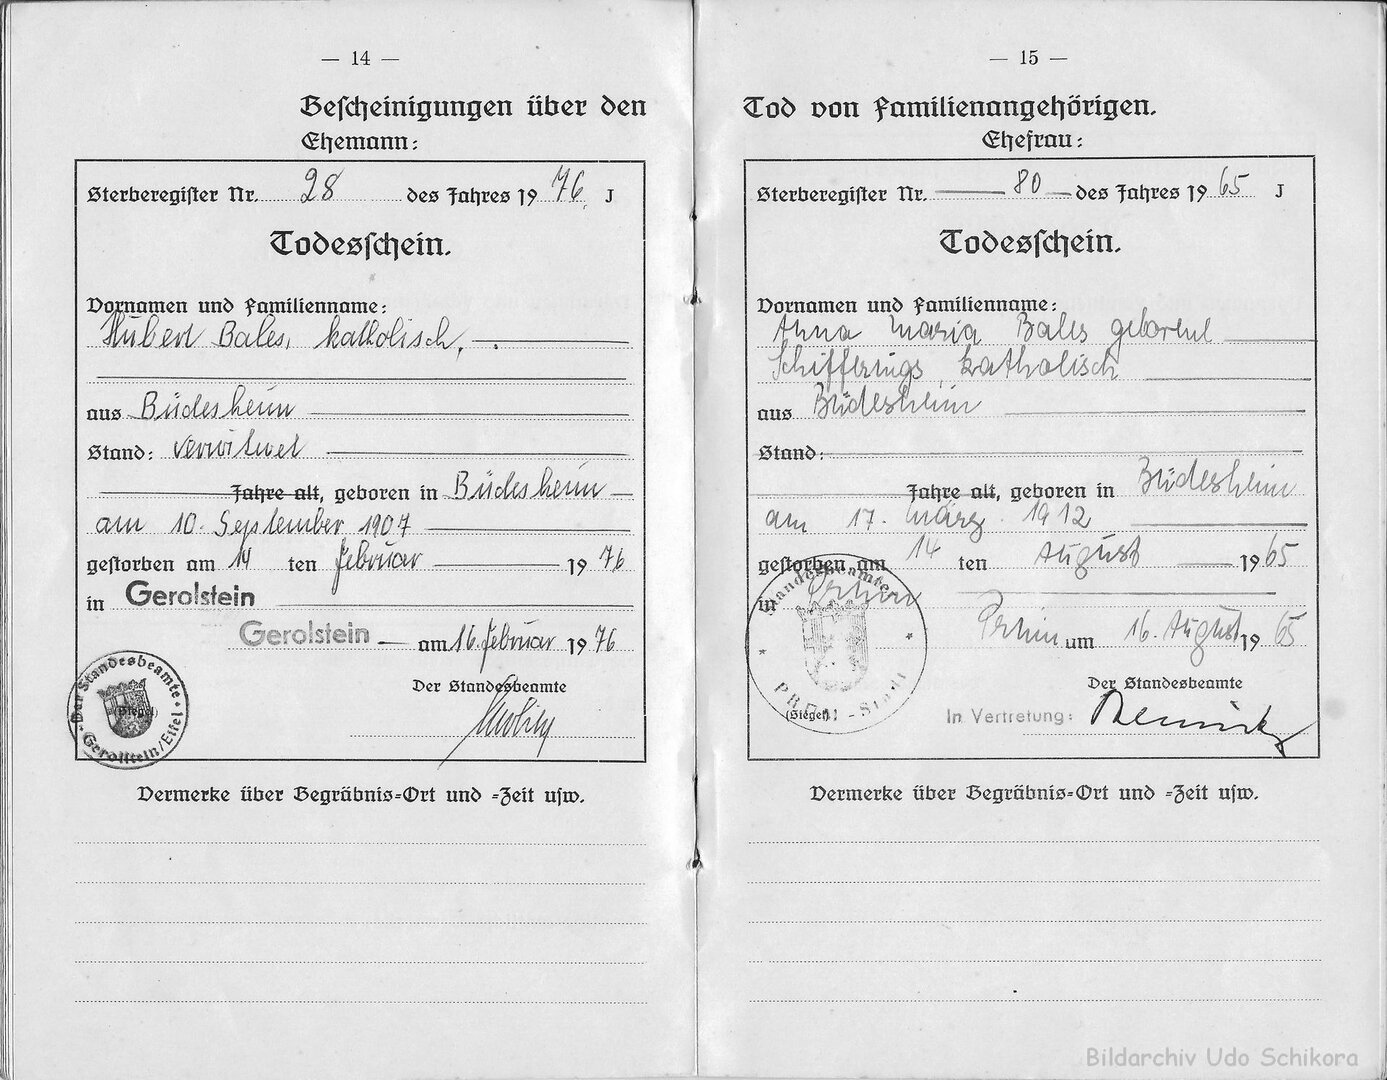 — 14 —
Bescheinigungen über den
Ehemann:
Sterberegister Nr. 28 des Jahres 1976 J
Todesschein.
Vornamen und Familienname:
Hubert Bales, katholisch,
aus Büdesheim
Stand: verwitwet
Jahre alt, geboren in Büdesheim
am 10. September 1907
gestorben am 14 ten Februar 1976
in Gerolstein
Gerolstein am 16. Februar 1976
Der Standesbeamte
Der Standesbeamte
(Siegel)
Gerolstein/Eifel
Vermerke über Begräbnis-Ort und -Zeit usw.
— 15 —
Tod von Familienangehörigen.
Ehefrau:
Sterberegister Nr. 80 des Jahres 1965 J
Todesschein.
Vornamen und Familienname:
Anna Maria Bales geborene
Schifferings, katholisch
aus Büdesheim
Stand:
Jahre alt, geboren in Büdesheim
am 17. März 1912
gestorben am 14 ten August 1965
in Prüm
Prüm am 16. August 1965
Der Standesbeamte
Standesbeamte
PRÜM-Stadt
(Siegel)
In Vertretung:
Vermerke über Begräbnis-Ort und -Zeit usw.
Bildarchiv Udo Schikora